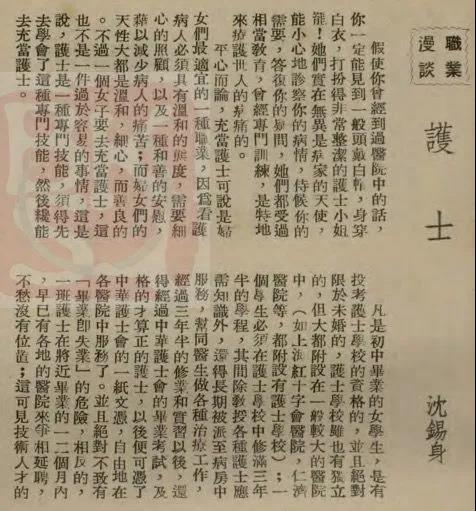 職業
漫談
護士
沈錫身
假使你曾經到過醫院中的話，
你一定能見到一般頭戴白帽，身穿
白衣，打扮得非常整潔的護士小姐
罷！她們實在無異是病家的天使，
能小心地診察你的病情，侍候你的
需要，答復你的疑問，她們都受過
相當教育，曾經專門訓練，是特地
來療護世人的病痛的。
平心而論，充當護士可說是婦
女們最適宜的一種職業，因爲看護
病人必須具有溫和的態度，需要細
心的照顧，以及一種和善的安慰，
藉以減少病人的痛苦；而婦女們的
天性大都是溫和，細心，而善良的
。不過一個女子要去充當護士，這
也不是一件過於容易的事情，這是
說，護士是一種專門技能，須得先
去學會了這種專門技能，然後纔能
去充當護士。
凡是初中畢業的女學生，是有
投考護士學校的資格的，並且絕對
限於未婚的，護士學校雖也有獨立
的，但大都附設在一般較大的醫院
中，（如上海紅十字會醫院，仁濟
醫院等，都附設有護士學校）；一
個學生必須在護士學校中修滿三年
半的學程，其間除教授各種護士應
需知識外，還得長期被派至病房中
服務，幫同醫生做各種治療工作，
經過三年半的修業和實習以後，還
得經過中華護士會的畢業考試，及
格的才算正的護士，以後便可憑了
中華護士會的一紙文憑，自由地在
各醫院中服務了。並且絕對不致有
「畢業即失業」的危險，相反的，
一班護士在將近畢業的一二個月內
，早已有各地的醫院來爭相延聘，
不愁沒有位置；這可見技術人才的